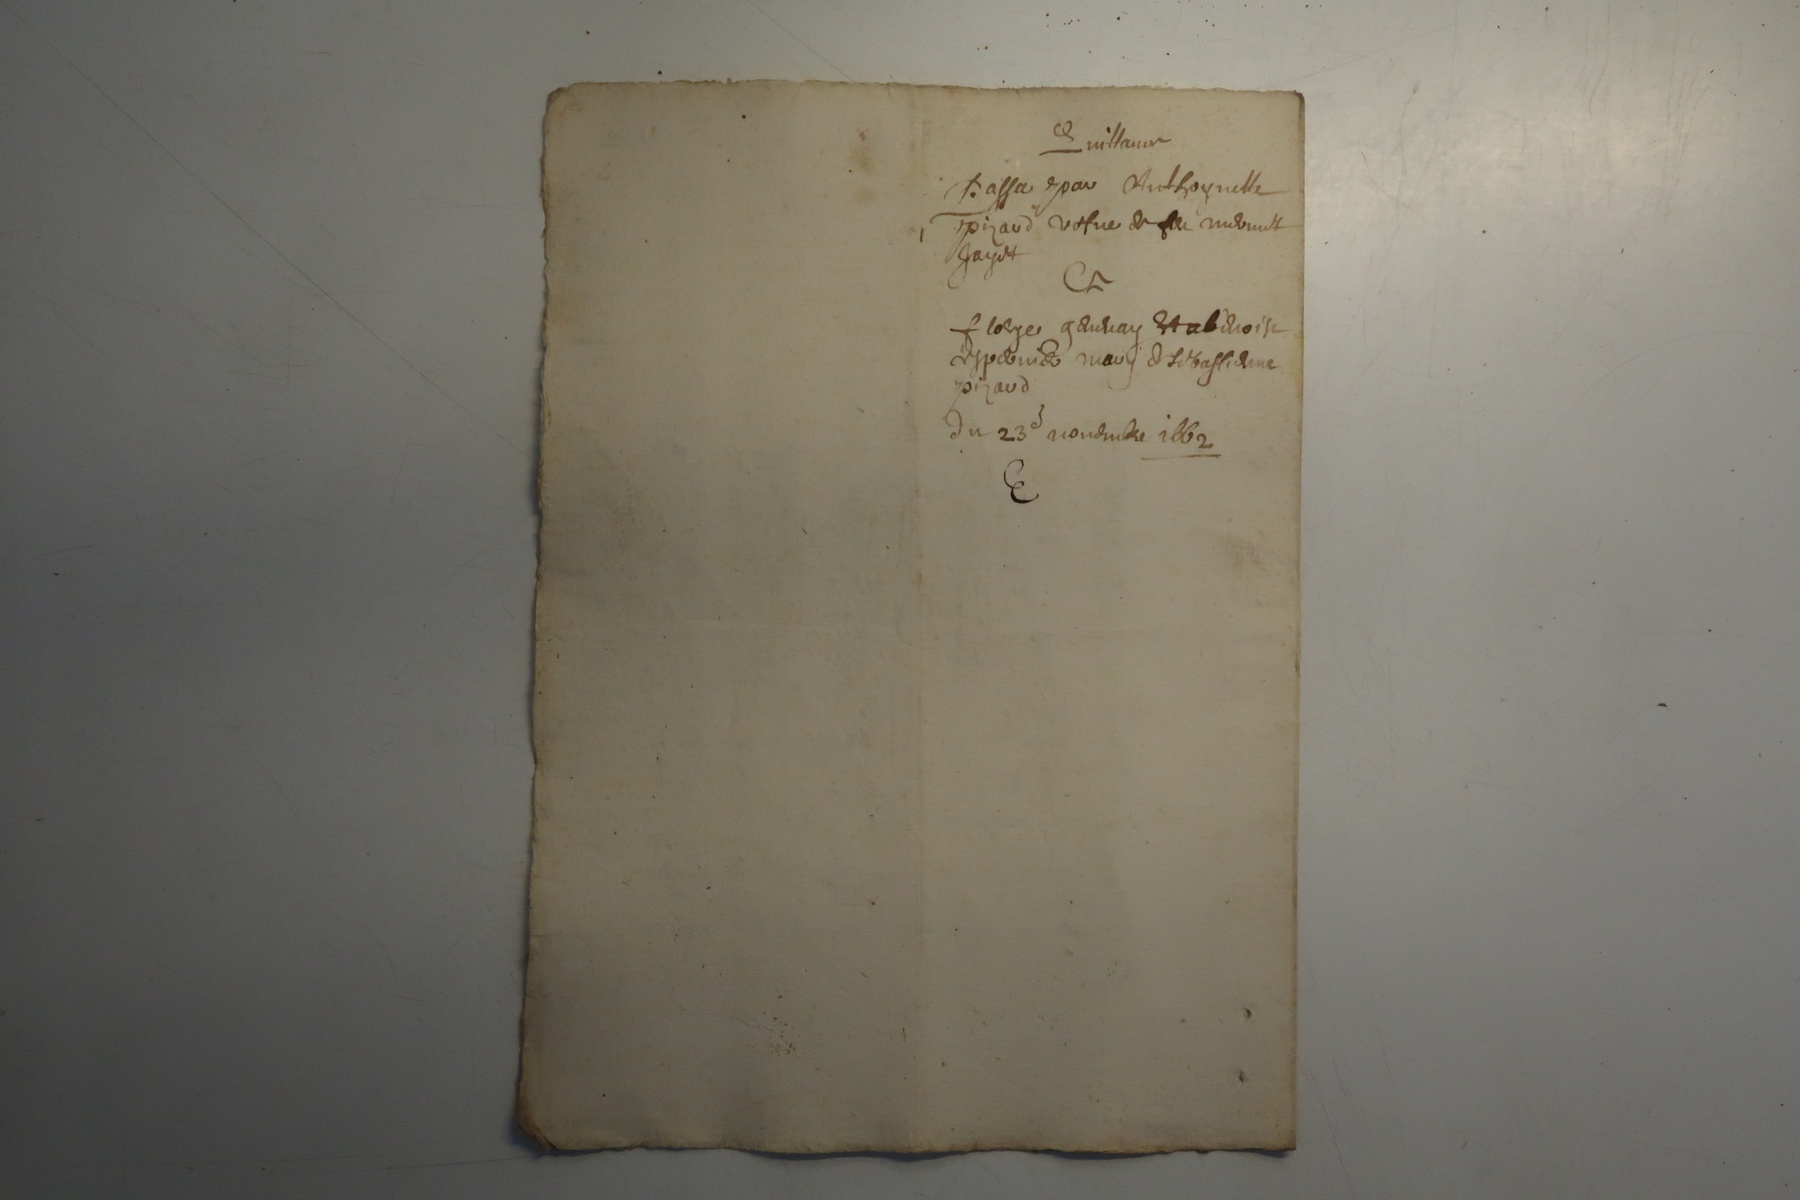 Quittance
Passa par Anthoynette
pizard vefue de feu
Jayet
Et
genuay
mary de Sebastienne
pizard
Du 23e nouembre 1662